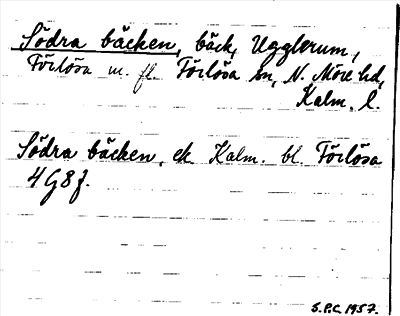 Södra bäcken, bäck, Ugglerum,
Förlösa m. fl. Förlösa sn, N. Möre hd,
Kalm. l.
Södra bäcken, ek. Kalm. bl. Förlösa
4G8f.
S.P.C. 1957.